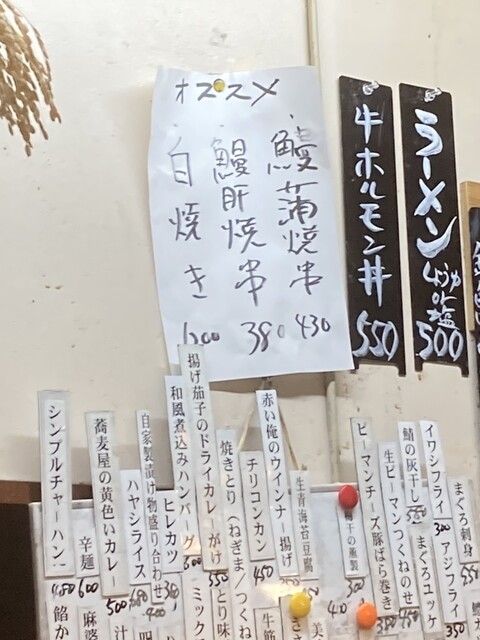 オススメ
鰻蒲焼串 430
鰻肝焼串 380
白焼き 600
ラーメン しょうゆor塩 500
牛ホルモン丼 550
イワシフライ 300
まぐろ刺身 550
アジフライ 350
鯖の灰干し 550
まぐろユッケ
生ピーマンつくねのせ 450
ピーマンチーズ豚ばら巻き 380
梅干の燻製 300
生青海苔豆腐
赤い俺のウインナー揚げ
チリコンカン 450
焼きとり(ねぎま/つくね
揚げ茄子のドライカレーがけ 550
和風煮込みハンバーグ 600
ヒレカツ
自家製漬け物盛り合わせ 400
ハヤシライス 680
蕎麦屋の黄色いカレー 500
辛麺 600
シンプルチャーハン 480
ミックス
とり味
牛筋
麻婆
餡か